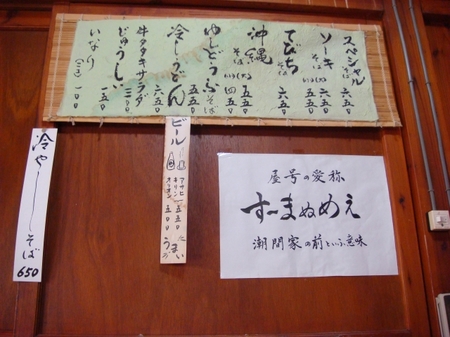 スペシャルそば 六五〇
ソーキそば 六五〇 五五〇
てびちそば 六五〇
沖縄そば 五五〇 四五〇
ゆしどうふそば 五五〇
冷しうどん 六五〇
牛タタキサラダ 三〇〇
じゅうしい 一五〇
いなり 一〇〇
ビール
アサヒ
キリン 五五〇
オリオン 五〇〇
冷やーしそば 650
屋号の愛称
すーまぬめぇ
潮間家の前という意味